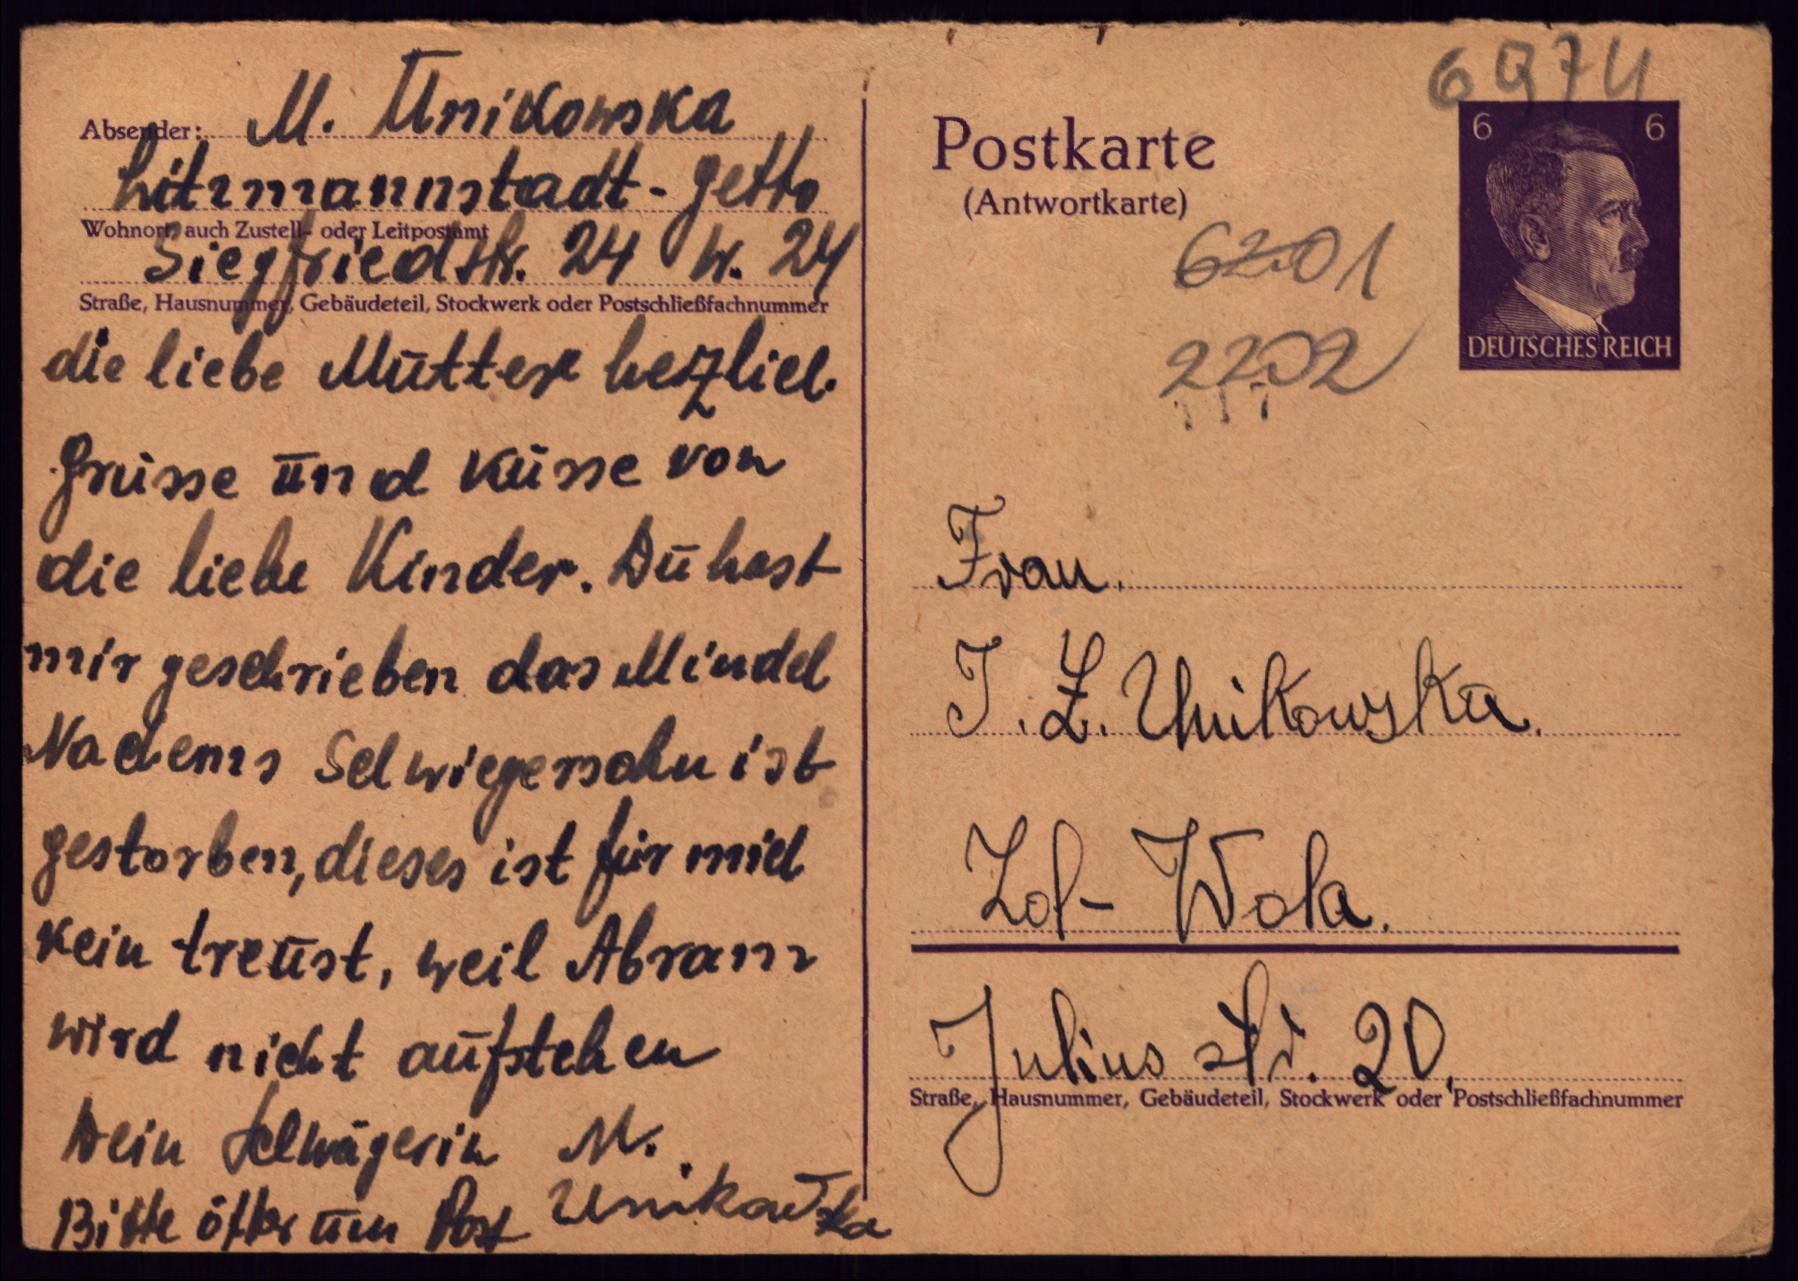 Absender: M. Unikowska
Litzmannstadt-getto
Wohnort, auch Zustell- oder Leitpostamt
Siegfriedstr. 24 W. 24
Straße, Hausnummer, Gebäudeteil, Stockwerk oder Postschließfachnummer
die liebe Mutter hezlich
Grüsse und Küsse von
die liebe Kinder. Du hast
mir geschrieben das Mindel
Nachems Schwiegersohn ist
gestorben, dieses ist für mich
kein treust, weil Abram
wird nicht aufstehen
Dein Schwägerin M.
Bitte öfter um Post Unikowska
6974
6 6
Postkarte
(Antwortkarte)
6201
2202
DEUTSCHES REICH
Frau.
I. Z. Unikowska.
Zd-Wola.
Julius str. 20.
Straße, Hausnummer, Gebäudeteil, Stockwerk oder Postschließfachnummer